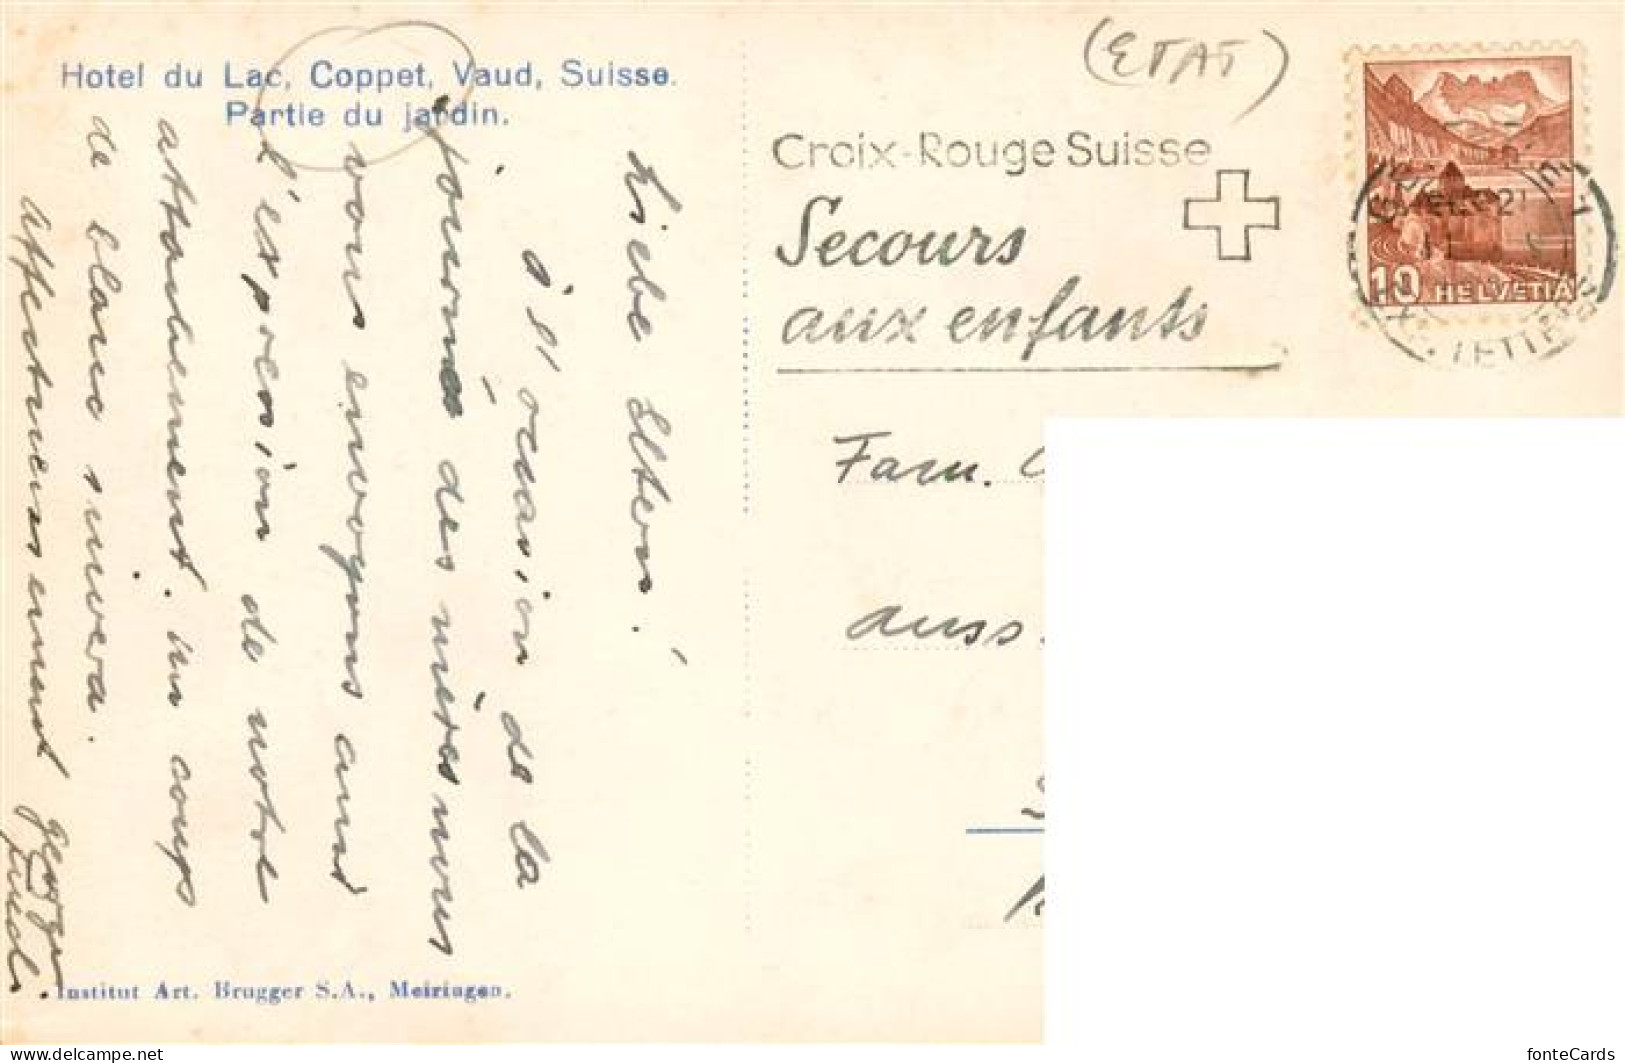 Hotel du Lac, Coppet, Vaud, Suisse.
Partie du jardin.
Liebe Eltern!
à l'occasion de la
journée des mères nous
vous envoyons aussi
l'expression de notre
attachement. Un coup
de blanc suivra.
Affectueusement
Institut Art. Brugger S.A., Meiringen.
(ETAT)
Croix-Rouge Suisse
Secours
aux enfants
10 HELVETIA
Fam.
auss.
fonteCards